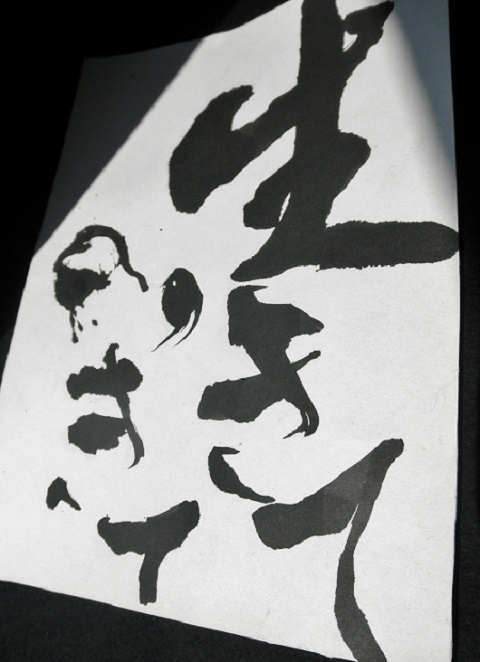 生きて
いきて